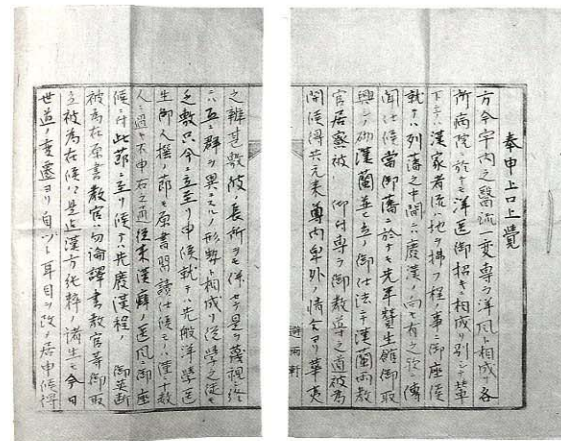 奉申上口上覚
方今宇内之醫流一変専ラ洋風ト相成リ各
所病院ニ於テモ洋医御招キ相成別シテ輦
下ニテハ漢家者流ハ地ヲ拂フ程ノ事ニ御座候
就テハ列藩之中間ニハ廃漢ノ向モ有之哉ニ傳
聞仕候當御藩ニ於テモ先年賛生館御取
興シノ砌漢蘭並ヒ立ノ御仕法ニテ漢蘭両教
官居寮被 御付専ラ御教導之道被為
開候得共元来尊内卑外ノ情合ヨリ華夷
之辨甚敷彼ノ長所ヲモ併セテ是ヲ蔑視シ終
ニハ五ニ群ヲ異ニスルノ形勢ト相成リ従学之徒モ
乏敷只今ニ立至リ申候就テハ先般洋学医
生御人撰ノ節モ原書習讀仕候モノハ僅十数
人ニ過キ不申右之通従来漢癖ノ医風ニ御座
候ニ付此節ニ至リ候テハ先廃漢程ノ 御英断
被為在原書教官ハ勿論譯書教官等御取
立被為在候ハヽ是迄漢方純粋ノ諸生モ今日
世道ノ変遷ヨリ自ツト耳目ヲ改メ居申候得